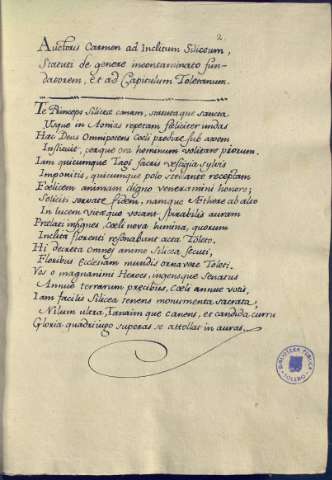 2
Auctoris Carmen ad Inclitum Siliceum,
Statuti de genere incontaminato fun-
datorem, et ad Capitulum Toletanum.
Te Princeps Silicea canam, statutaque sancta
Usque in Aonias repetam feliciter undas
Hac Deus Omnipotens Coeli probat sub axem
Instituit, corque ora hominum volitare piorum.
Iam quicumque Tagi sacris vestigia sylvis
Imponitis, quicumque polo stellante receptam
Foelicem animam digno veneramini honore;
Soliciti servate fidem, namque Aethere ab alto
In lucem vitaeque vocant spirabilis auram
Prelati insignes, Coeli nova lumina, quorum
Inclita florenti resonabunt acta Toleto.
Hi decreta omnes animo Silicea secuti,
Floribus Ecclesiam mundis ornavere Toleti.
Vos o magnanimi Heroes, ingensque Senatus
Annue terrarum precibus, Coeli annue votis,
Iam facilis Silicea tenens monumenta sacrata,
Nilum ultra, Tanaim que canens, et candida curru
Gloria quadriiugo superas se attollat in auras.
BIBLIOTECA PUBLICA
TOLEDO